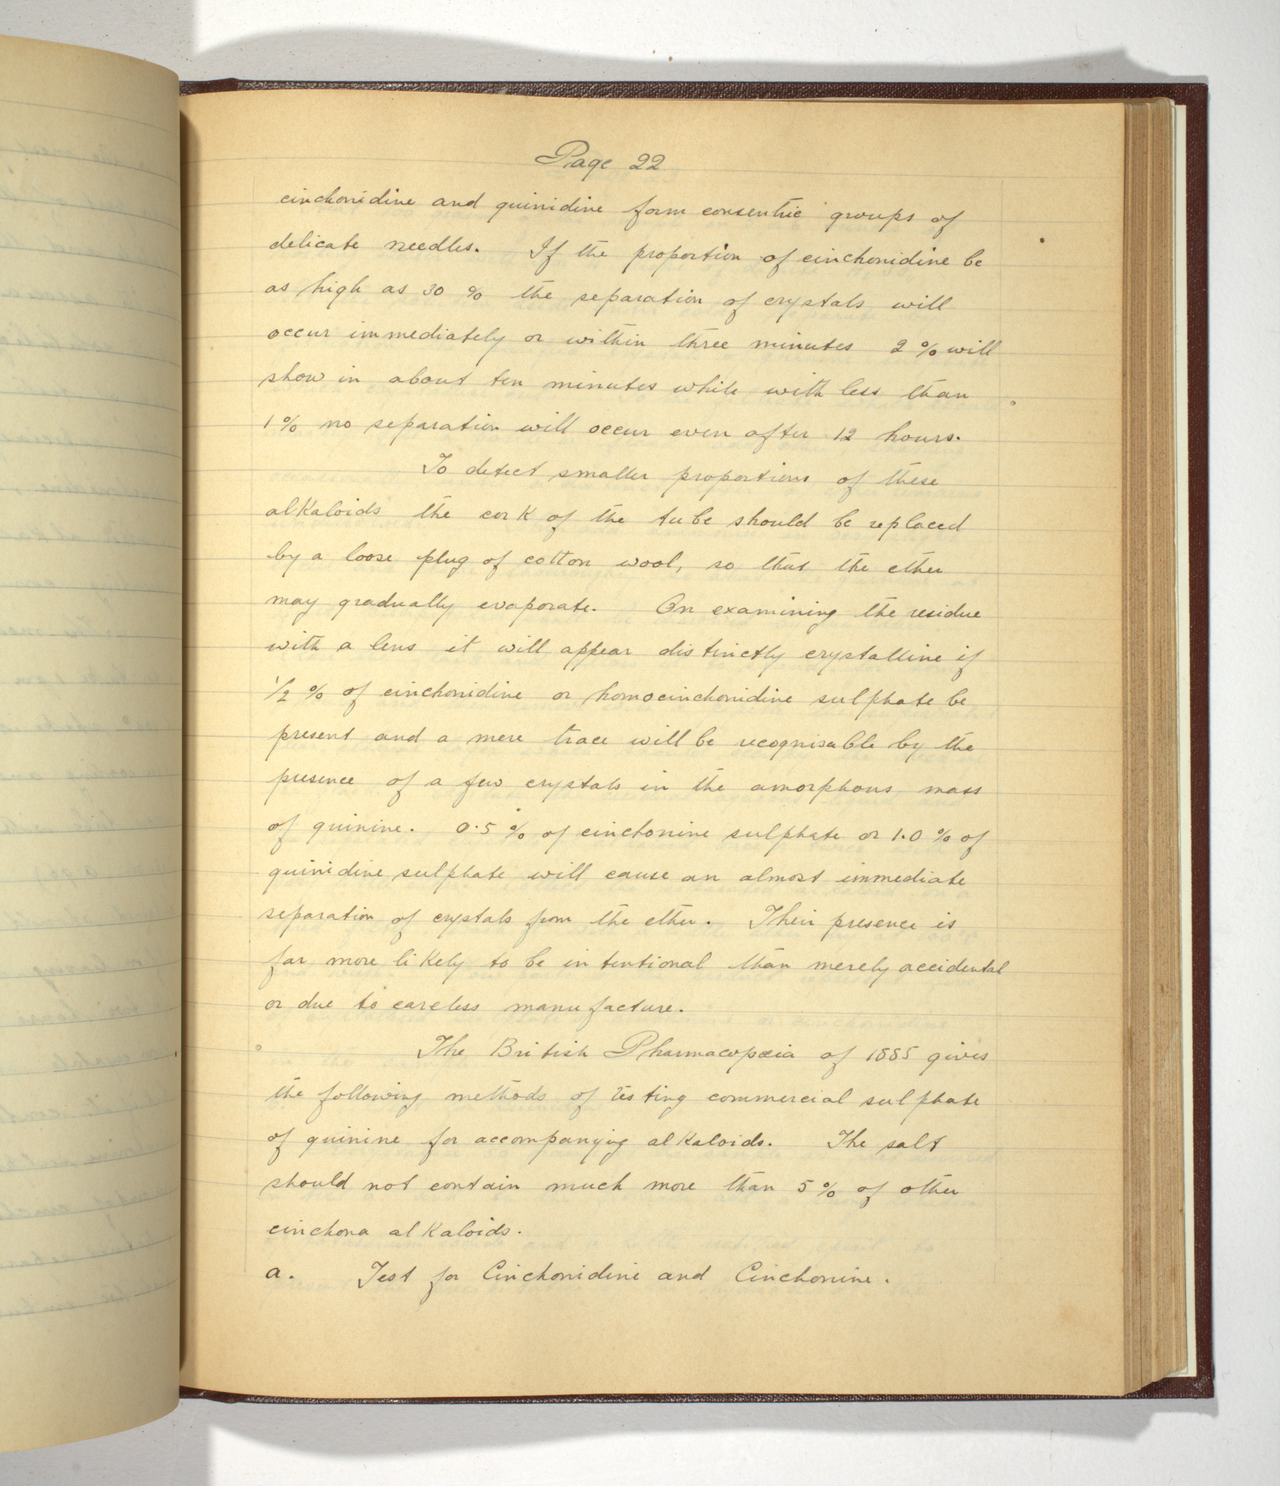 Page 22
cinchonidine and quinidine form consentric groups of
delicate needles. If the proportion of cinchonidine be
as high as 30 % the separation of crystals will
occur immediately or within three minutes 2 % will
show in about ten minutes while with less than
1 % no separation will occur even after 12 hours.
To detect smaller proportions of these
alkaloids the cork of the tube should be replaced
by a loose plug of cotton wool, so that the ether
may gradually evaporate. On examining the residue
with a lens it will appear distinctly crystalline if
1/2 % of cinchonidine or homocinchonidine sulphate be
present and a mere trace will be recognisable by the
presence of a few crystals in the amorphous mass
of quinine. 0.5 % of cinchonine sulphate or 1.0 % of
quinidine sulphate will cause an almost immediate
separation of crystals from the ether. Their presence is
far more likely to be intentional than merely accidental
or due to careless manufacture.
The British Pharmacopœia of 1885 gives
the following methods of testing commercial sulphate
of quinine for accompanying alkaloids. The salt
should not contain much more than 5 % of other
cinchona alkaloids.
a. Test for Cinchonidine and Cinchonine.